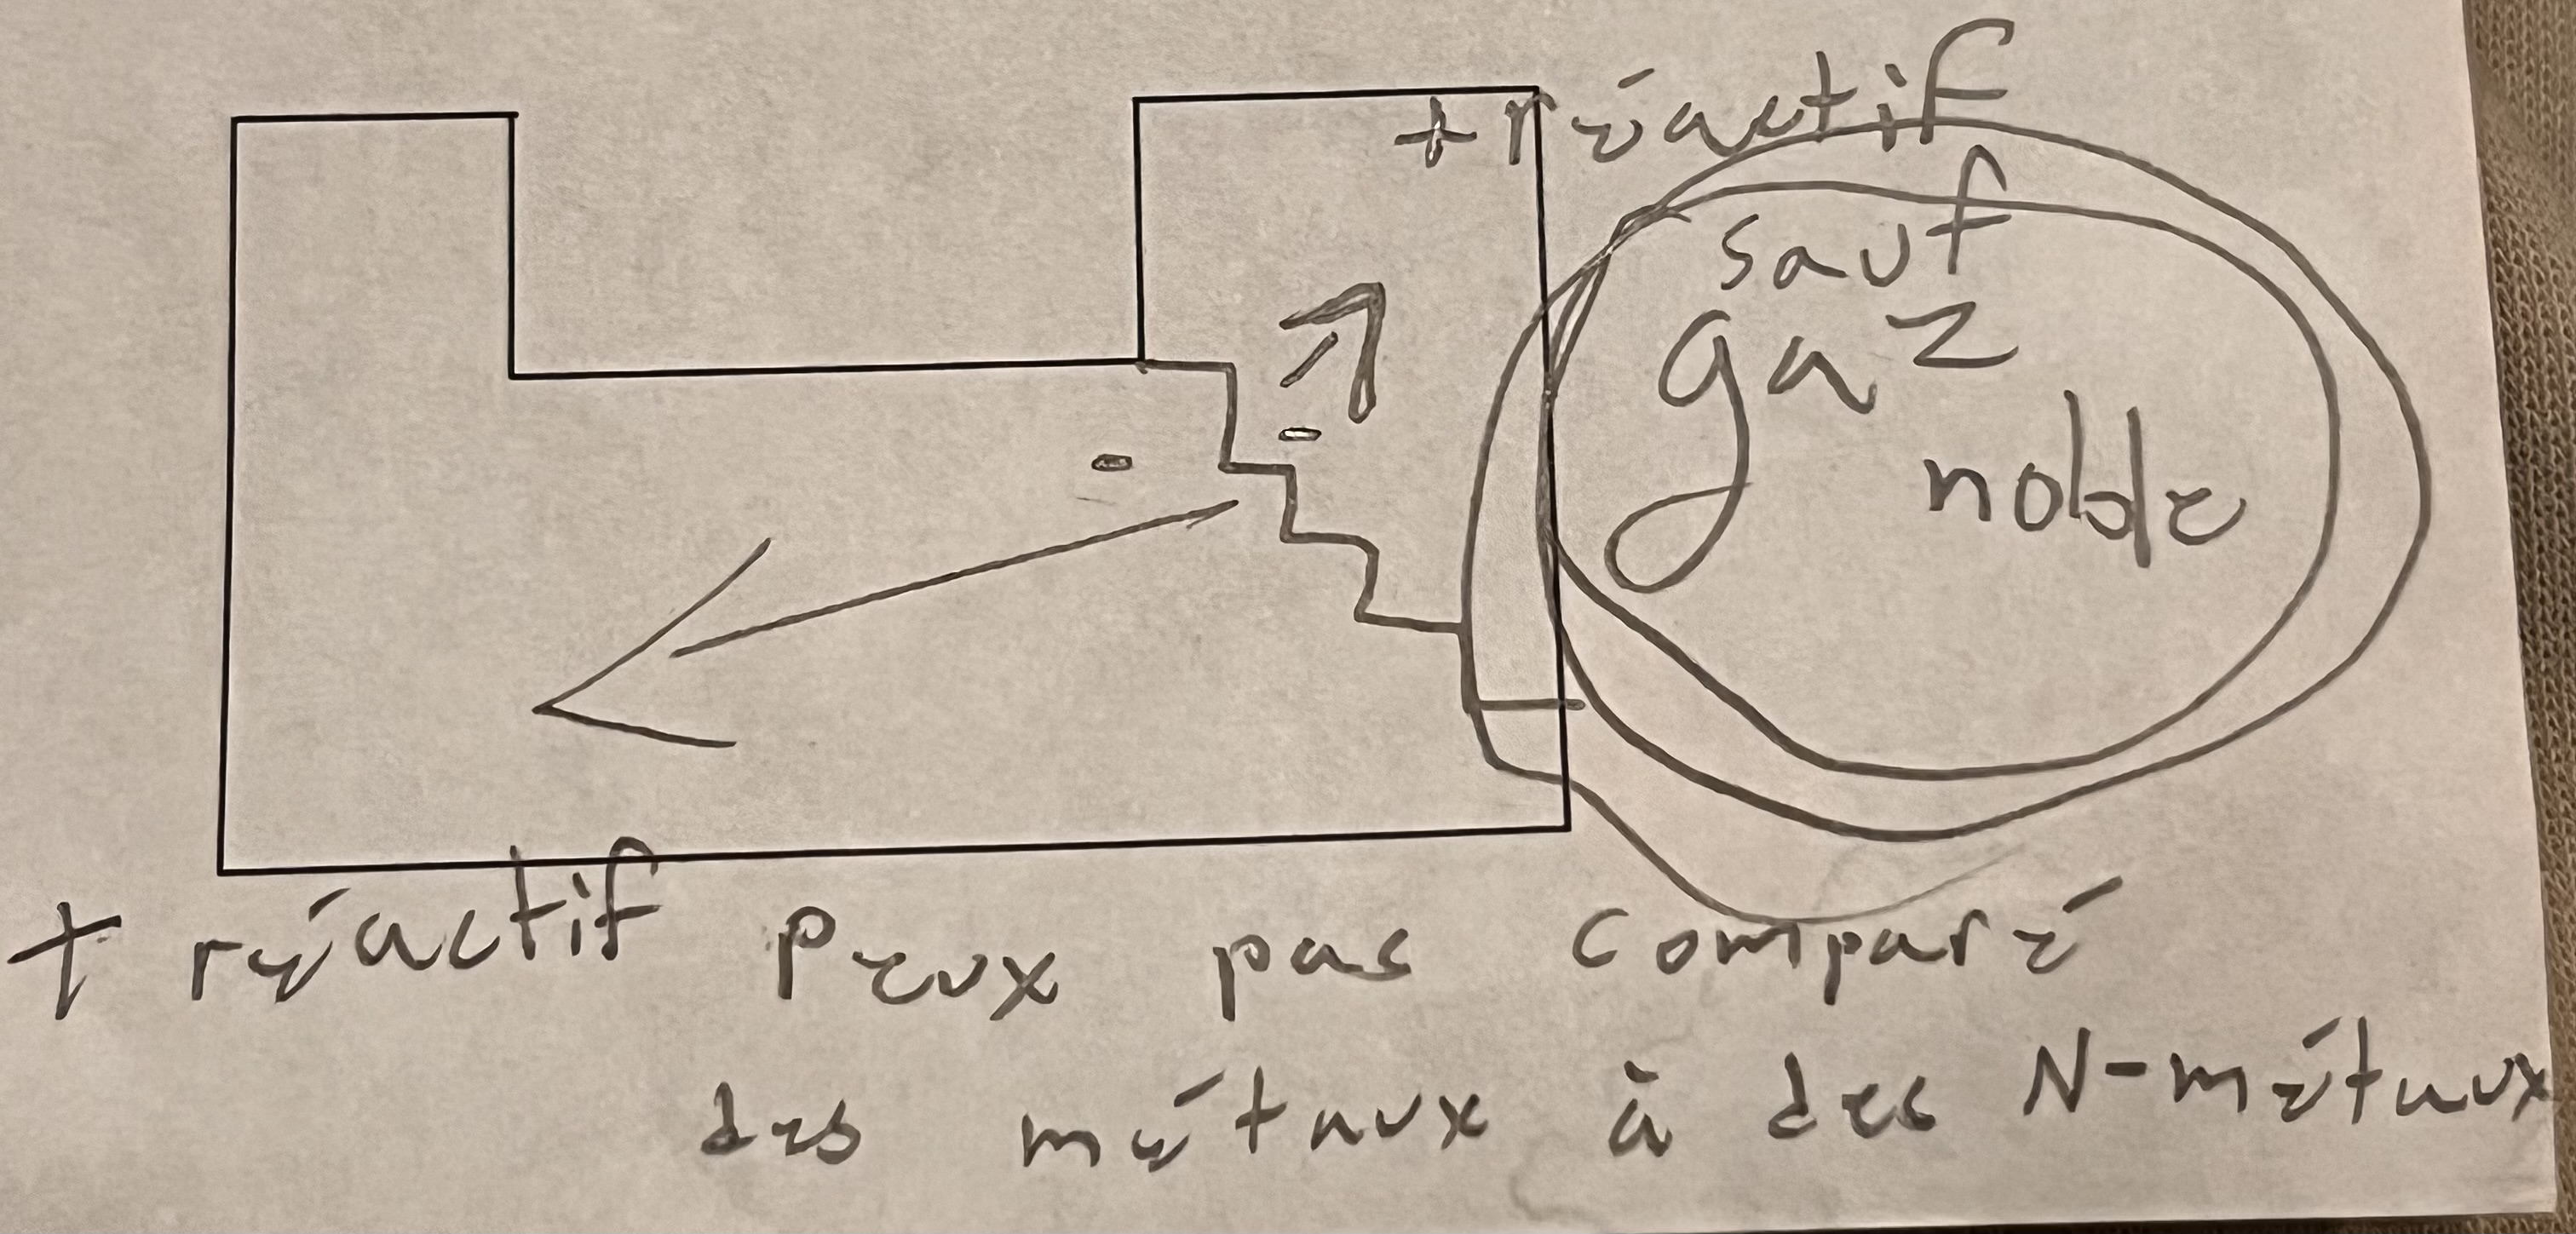 + réactif
sauf
gaz
noble
-
-
+ réactif peux pas comparé
des métaux à des N-métaux